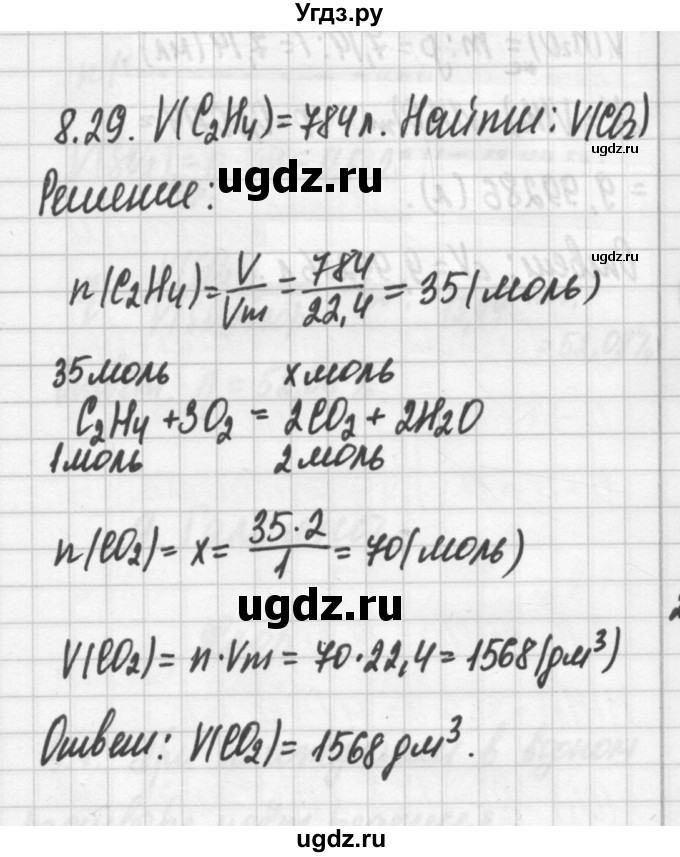 Угдз.ру
8.29. V(C₂H₄)=784л. Найти: V(CO₂)
Решение:
ugdz.ru
n(C₂H₄)=V/Vm=784/22,4=35(моль)
35моль x моль
C₂H₄+3O₂=2CO₂+2H₂O
1моль 2 моль
n(CO₂)=x=35·2/1=70(моль)
ugdz.ru
V(CO₂)=n·Vm=70·22,4=1568(дм³)
Ответ: V(CO₂)=1568дм³.
ugdz.ru